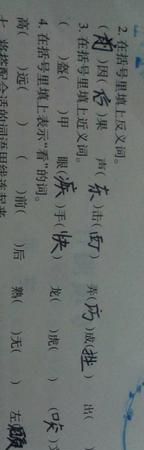 2.在括号里填上反义词。
( )因(后)果 声(东)击(西) 弄(巧)成(拙) 出(
3.在括号里填上近义词。
( )盔( )甲 眼(疾)手(快) 龙( )虎( ) (
4.在括号里填上表示“看”的词。
高( )远( ) ( )前( )后 熟( )无( ) 左(顾
将搭配合适的词语用线连起来